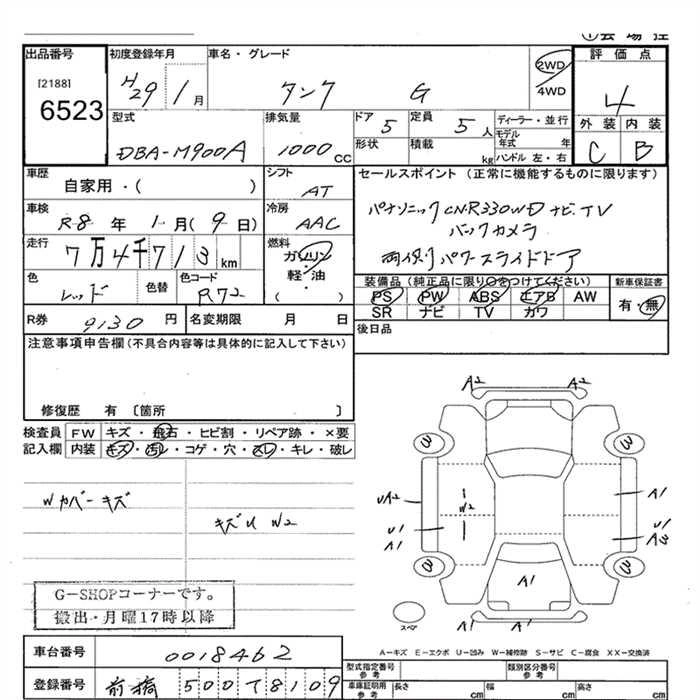 出品番号
[2188]
6523
初度登録年月
H29 1月
車名・グレード
タンク G
2WD
4WD
評価点
4
外装 内装
C B
型式
DBA-M900A
排気量
1000 CC
ドア
5
形状
定員
5人
積載
kg
ディーラー・並行
モデル
年式 年
ハンドル 左・右
車歴
自家用・( )
シフト
AT
セールスポイント (正常に機能するものに限ります)
パナソニックCN-R330WD ナビTV
バックカメラ
両側パワースライドドア
車検
R8 年 1月(9日)
冷房
AAC
走行
7万4千713km
燃料
ガソリン
軽・油
( )
色
レッド
色替
色コード
R72
装備品 (純正品に限り○をつけてください)
PS PW ABS エアB AW
SR ナビ TV カワ
新車保証書
有・無
R券
9130 円
名変期限 月 日
後日品
注意事項申告欄(不具合内容等は具体的に記入して下さい)
修復歴 有 〔箇所 〕
検査員
記入欄
FW キズ・飛石・ヒビ割・リペア跡・×要
内装 キズ・汚レ・コゲ・穴・スレ・キレ・破レ
Wカバーキズ
キズU W2
G-SHOPコーナーです。
搬出・月曜17時以降
A2 A2
UA2
U1
A1
W2
A1
U1
A1
A1
スペア
A1
A-キズ E-エクボ U-凹み W-補修跡 S-サビ C-腐食 XX-交換済
車台番号
0018462
登録番号
前橋 500 78109
型式指定番号
参考
類別区分番号
参考
車庫証明用
参考
長さ cm
幅 cm
高さ cm